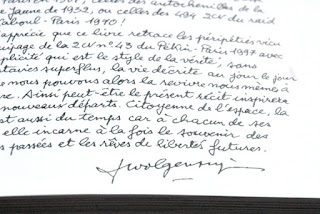 celles des autochenilles de la
Jaune de 1932, ou celles des 494 2CV du raid
Kaboul - Paris 1970 !
apprécie que ce livre retrace les péripéties vécu
uipage de la 2CV n° 43 du Pékin - Paris 1997 avec
plicité qui est le style de la vérité ; sans
superflus, la vie décrite au jour le jour
e nous pouvons alors la revivre nous-mêmes à
re. Ainsi peut-être le présent récit inspirera
nouveaux départs. Citoyenne de l'espace, la
est aussi du temps car à chacun de ses
elle incarne à la fois le souvenir des
s passées et les rêves de libertés futures.